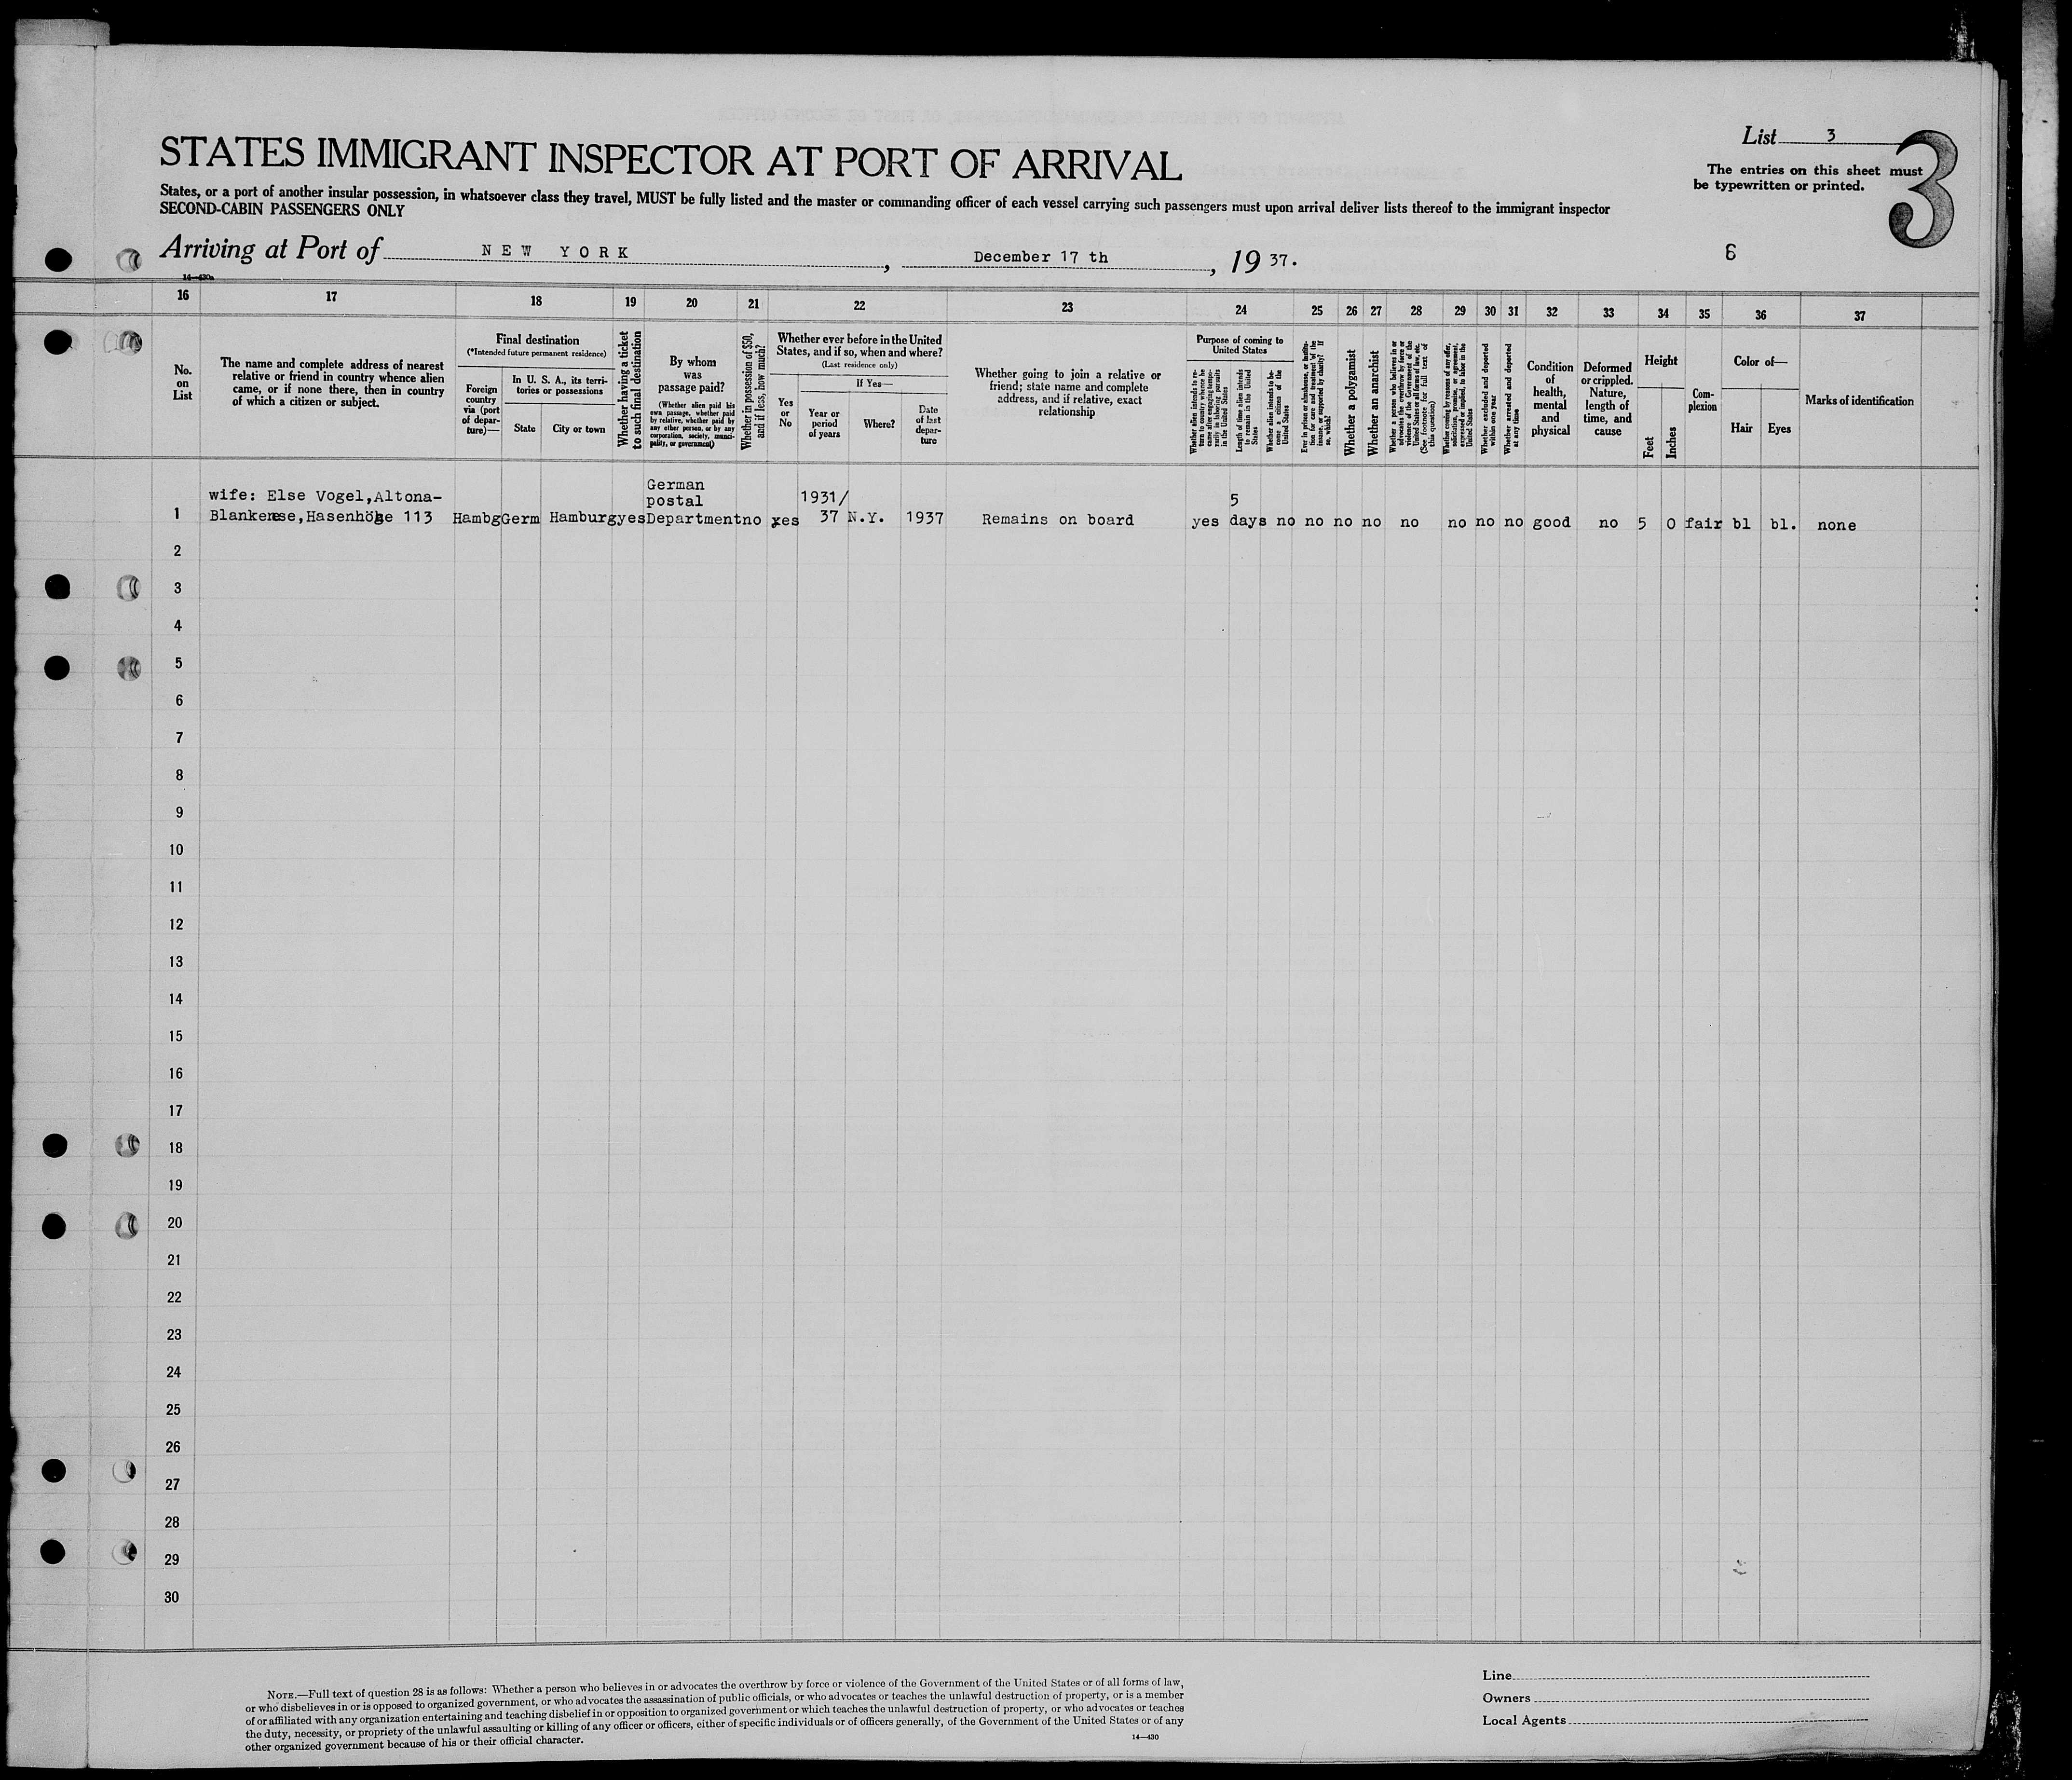 List 3
3
The entries on this sheet must
be typewritten or printed.
STATES IMMIGRANT INSPECTOR AT PORT OF ARRIVAL
States, or a port of another insular possession, in whatsoever class they travel, MUST be fully listed and the master or commanding officer of each vessel carrying such passengers must upon arrival deliver lists thereof to the immigrant inspector
SECOND-CABIN PASSENGERS ONLY
Arriving at Port of NEW YORK, December 17 th, 19 37.
6
14—430a
16 17 18 19 20 21 22 23 24 25 26 27 28 29 30 31 32 33 34 35 36 37
No.
on
List
The name and complete address of nearest
relative or friend in country whence alien
came, or if none there, then in country
of which a citizen or subject.
Final destination
(*Intended future permanent residence)
Foreign
country
via (port
of depar-
ture)—
In U. S. A., its terri-
tories or possessions
State
City or town
Whether having a ticket
to such final destination
By whom
was
passage paid?
(Whether alien paid his
own passage, whether paid
by relative, whether paid by
any other person, or by any
corporation, society, munici-
pality, or government)
Whether in possession of $50,
and if less, how much?
Whether ever before in the United
States, and if so, when and where?
(Last residence only)
Yes
or
No
If Yes—
Year or
period
of years
Where?
Date
of last
depar-
ture
Whether going to join a relative or
friend; state name and complete
address, and if relative, exact
relationship
Purpose of coming to
United States
Whether alien intends to re-
turn to country whence he
came after engaging tempo-
rarily in laboring pursuits
in the United States
Length of time alien intends
to remain in the United
States
Whether alien intends to be-
come a citizen of the
United States
Ever in prison or almshouse, or institu-
tion for care and treatment of the
insane, or supported by charity? If
so, which?
Whether a polygamist
Whether an anarchist
Whether a person who believes in or
advocates the overthrow by force or
violence of the Government of the
United States or all forms of law, etc.
(See footnote for full text of
this question)
Whether coming by reasons of any offer,
solicitation, promise, or agreement,
expressed or implied, to labor in the
United States
Whether excluded and deported
within one year
Whether arrested and deported
at any time
Condition
of
health,
mental
and
physical
Deformed
or crippled.
Nature,
length of
time, and
cause
Height
Feet
Inches
Com-
plexion
Color of—
Hair
Eyes
Marks of identification
German
wife: Else Vogel,Altona- postal 1931/ 5
1 Blankenese,Hasenhöhe 113 Hambg Germ Hamburg yes Department no yes 37 N.Y. 1937 Remains on board yes days no no no no no no no no good no 5 0 fair bl bl. none
2
3
4
5
6
7
8
9
10
11
12
13
14
15
16
17
18
19
20
21
22
23
24
25
26
27
28
29
30
NOTE.—Full text of question 28 is as follows: Whether a person who believes in or advocates the overthrow by force or violence of the Government of the United States or of all forms of law,
or who disbelieves in or is opposed to organized government, or who advocates the assassination of public officials, or who advocates or teaches the unlawful destruction of property, or is a member
of or affiliated with any organization entertaining and teaching disbelief in or opposition to organized government or which teaches the unlawful destruction of property, or who advocates or teaches
the duty, necessity, or propriety of the unlawful assaulting or killing of any officer or officers, either of specific individuals or of officers generally, of the Government of the United States or of any
other organized government because of his or their official character.
14—430
Line
Owners
Local Agents